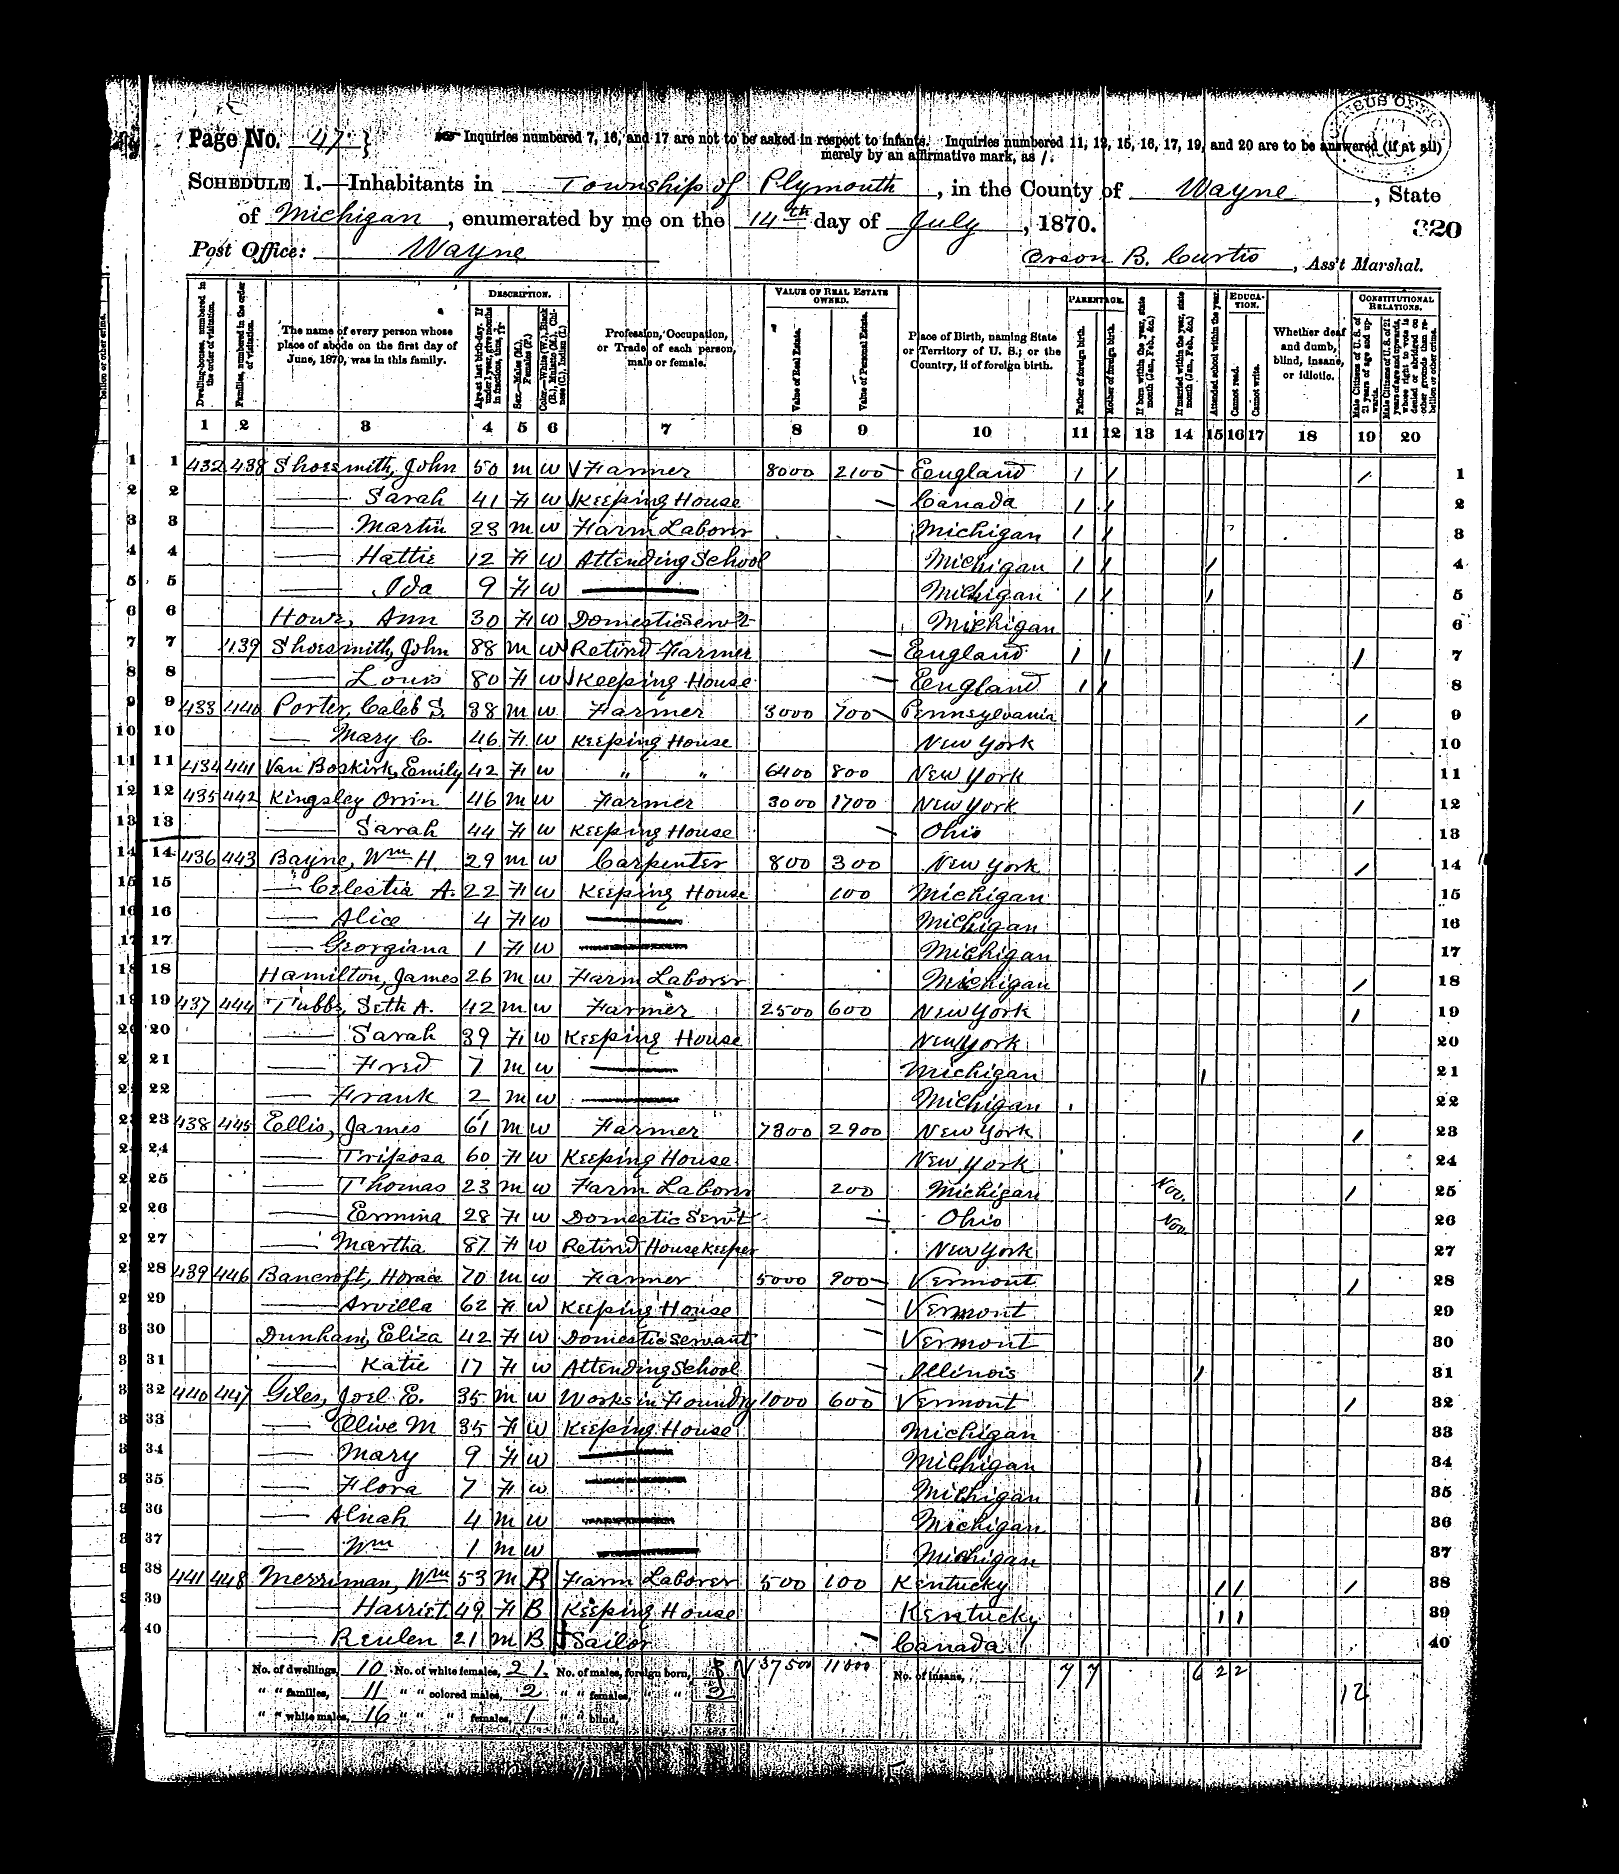 Page No. 47
Inquiries numbered 7, 16, and 17 are not to be asked in respect to infants. Inquiries numbered 11, 12, 15, 16, 17, 19, and 20 are to be answered (if at all)
merely by an affirmative mark, as /.
SCHEDULE 1.—Inhabitants in Township of Plymouth, in the County of Wayne, State
of Michigan, enumerated by me on the 14th day of July, 1870.
320
Post Office: Wayne
Orson B. Curtis, Ass't Marshal.
DESCRIPTION. VALUE OF REAL ESTATE OWNED. PARENTAGE. EDUCATION. CONSTITUTIONAL RELATIONS.
Dwelling-houses, numbered in the order of visitation.
Families, numbered in the order of visitation.
The name of every person whose place of abode on the first day of June, 1870, was in this family.
Age at last birth-day. If under 1 year, give months in fractions, thus, 3/12.
Sex.—Males (M.), Females (F.)
Color.—White (W.), Black (B.), Mulatto (M.), Chinese (C.), Indian (I.)
Profession, Occupation, or Trade of each person, male or female.
Value of Real Estate.
Value of Personal Estate.
Place of Birth, naming State or Territory of U. S.; or the Country, if of foreign birth.
Father of foreign birth.
Mother of foreign birth.
If born within the year, state month (Jan., Feb., &c.)
If married within the year, state month (Jan., Feb., &c.)
Attended school within the year.
Cannot read.
Cannot write.
Whether deaf and dumb, blind, insane, or idiotic.
Male Citizens of U. S. of 21 years of age and upwards.
Male Citizens of U. S. of 21 years of age and upwards, whose right to vote is denied or abridged on other grounds than rebellion or other crime.
1 2 3 4 5 6 7 8 9 10 11 12 13 14 15 16 17 18 19 20
1 432 438 Shoesmith, John 50 M W Farmer 8000 2100 England / / / 1
2 — Sarah 41 F W Keeping House Canada / / 2
3 — Martin 23 M W Farm Laborer Michigan / / 3
4 — Hattie 12 F W Attending School Michigan / / / 4
5 — Ida 9 F W — Michigan / / / 5
6 Howr, Ann 30 F W Domestic Serv't Michigan 6
7 439 Shoesmith, John 88 M W Retird Farmer England / / / 7
8 — Louis 80 F W Keeping House England / / 8
9 433 440 Porter, Caleb S. 38 M W Farmer 3000 700 Pennsylvania / 9
10 — Mary C. 46 F W Keeping House New York 10
11 434 441 Van Boskirk, Emily 42 F W " " 6400 800 New York 11
12 435 442 Kingsley Orrin 46 M W Farmer 3000 1700 New York / 12
13 — Sarah 44 F W Keeping House Ohio 13
14 436 443 Bayne, Wm H. 29 M W Carpenter 800 300 New York / 14
15 — Celestia A. 22 F W Keeping House 100 Michigan 15
16 — Alice 4 F W — Michigan 16
17 — Georgiana 1 F W — Michigan 17
18 Hamilton, James 26 M W Farm Laborer Michigan / 18
19 437 444 Tubbs, Seth A. 42 M W Farmer 2500 600 New York / 19
20 — Sarah 39 F W Keeping House New York 20
21 — Fred 7 M W — Michigan / 21
22 — Frank 2 M W — Michigan 22
23 438 445 Ellis, James 61 M W Farmer 7300 2900 New York / 23
24 — Triposa 60 F W Keeping House New York 24
25 — Thomas 23 M W Farm Laborer 200 Michigan Nov. / 25
26 — Ermina 28 F W Domestic Serv't Ohio Nov. 26
27 — Martha 87 F W Retird Housekeeper New York 27
28 439 446 Bancroft, Horace 70 M W Farmer 5000 900 Vermont / 28
29 — Arvilla 62 F W Keeping House Vermont 29
30 Dunham, Eliza 42 F W Domestic Servant Vermont 30
31 — Katie 17 F W Attending School Illinois / 31
32 440 447 Giles, Joel E. 35 M W Works in Foundry 1000 600 Vermont / 32
33 — Olive M 35 F W Keeping House Michigan 33
34 — Mary 9 F W — Michigan / 34
35 — Flora 7 F W — Michigan / 35
36 — Alnah 4 M W — Michigan 36
37 — Wm 1 M W — Michigan 37
38 441 448 Merriman, Wm 53 M B Farm Laborer 500 100 Kentucky / / / 38
39 — Harriet 49 F B Keeping House Kentucky / / 39
40 — Reulen 21 M B Sailor Canada 40
No. of dwellings, 10 No. of white females, 21. No. of males, foreign born, 37500 11000 No. of insane, 7 7 6 2 2
" " families, 11 " " colored males, 2 " " females, " " 12
" " white males, 16 " " " females, 1 " " blind,